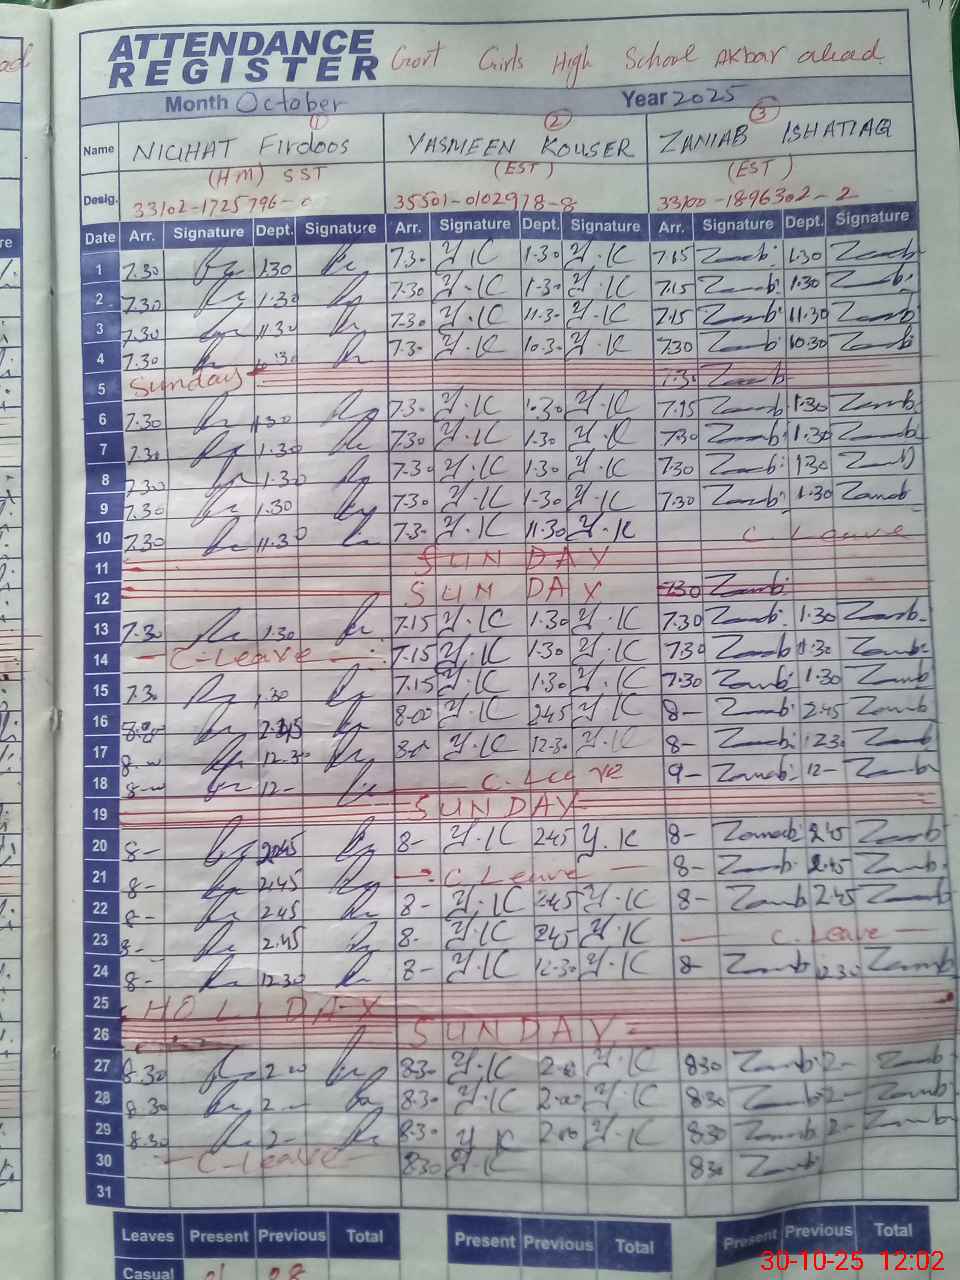 ATTENDANCE REGISTER Govt Girls High School Akbar abad
Month October Year 2025
① ② ③
Name NIGHAT Firdoos YASMEEN KOUSER ZANIAB ISHATIAQ
(Hm) SST (EST) (EST)
Desig. 33102-1725796-0 35501-0102978-8 33100-1896302-2
Date Arr. Signature Dept. Signature Arr. Signature Dept. Signature Arr. Signature Dept. Signature
1 7.30 1.30 7.30 Y.K 1.30 Y.K 7.15 Zanab 1.30 Zanab
2 7.30 1.30 7.30 Y.K 1.30 Y.K 7.15 Zanab 1.30 Zanab
3 7.30 11.30 7.30 Y.K 11.30 Y.K 7.15 Zanab 11.30 Zanab
4 7.30 7.30 Y.K 10.30 Y.K 7.30 Zanab 10.30 Zanab
5 Sunday 7.30 Zanab
6 7.30 1.30 7.30 Y.K 1.30 Y.K 7.15 Zanab 1.30 Zanab
7 7.30 1.30 7.30 Y.K 1.30 Y.K 7.30 Zanab 1.30 Zanab
8 7.30 1.30 7.30 Y.K 1.30 Y.K 7.30 Zanab 1.30 Zanab
9 7.30 1.30 7.30 Y.K 1.30 Y.K 7.30 Zanab 1.30 Zanab
10 7.30 11.30 7.30 Y.K 11.30 Y.K C. Leave
11 SUNDAY
12 SUNDAY 7.30 Zanab
13 7.30 1.30 7.15 Y.K 1.30 Y.K 7.30 Zanab 1.30 Zanab
14 C-Leave 7.15 Y.K 1.30 Y.K 7.30 Zanab 1.30 Zanab
15 7.30 1.30 7.15 Y.K 1.30 Y.K 7.30 Zanab 1.30 Zanab
16 2.45 8-00 Y.K 2.45 Y.K 8- Zanab 2.45 Zanab
17 8-00 12.30 8-0 Y.K 12.30 Y.K 8- Zanab 12.30 Zanab
18 8-00 12- C. Leave 9- Zanab 12- Zanab
19 SUNDAY
20 8- 2.45 8- Y.K 2.45 Y.K 8- Zanab 2.45 Zanab
21 8- 2.45 C Leave 8- Zanab 2.45 Zanab
22 8- 2.45 8- Y.K 2.45 Y.K 8- Zanab 2.45 Zanab
23 8- 2.45 8- Y.K 2.45 Y.K C. Leave
24 8- 12.30 8- Y.K 12.30 Y.K 8- Zanab 12.30 Zanab
25 HOLIDAY
26 SUNDAY
27 8.30 2-00 8.30 Y.K 2-00 Y.K 8.30 Zanab 2- Zanab
28 8.30 2- 8.30 Y.K 2-00 Y.K 8.30 Zanab 2- Zanab
29 8.30 2- 8.30 Y.K 2-00 Y.K 8.30 Zanab 2- Zanab
30 C-Leave 8.30 Y.K 8.30 Zanab
31
Leaves Present Previous Total Present Previous Total Present Previous Total
Casual
30-10-25 12:02